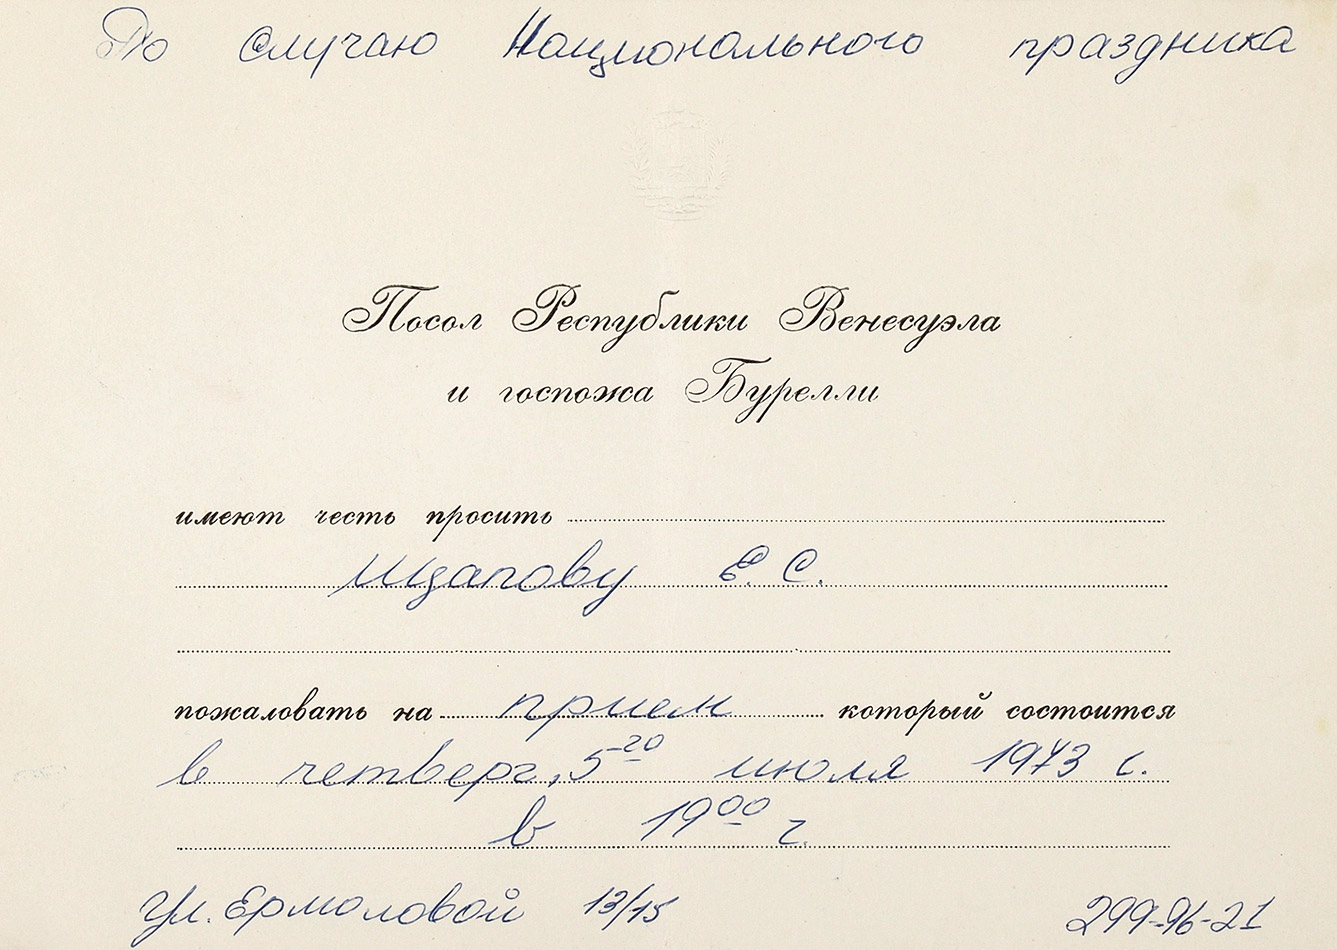 По случаю Национального праздника
Посол Республики Венесуэла
и госпожа Бурелли
имеют честь просить
Щапову Е. С.
пожаловать на прием который состоится
в четверг, 5-го июля 1973 г.
в 19⁰⁰ ч.
Ул. Ермоловой 13/15 299-96-21